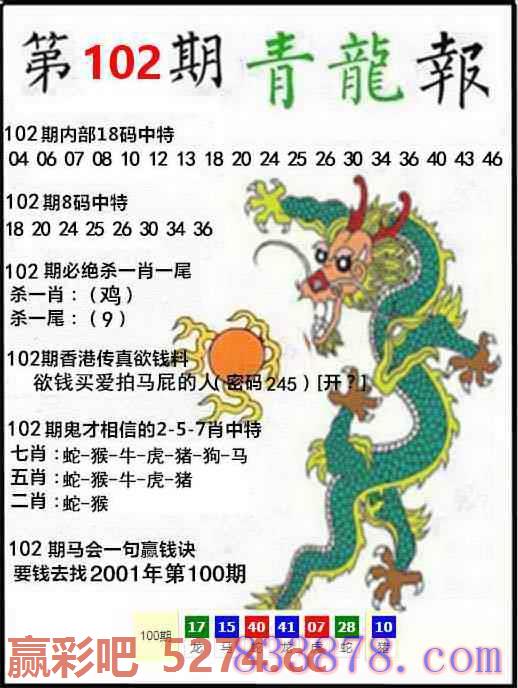 第102期 青龍報
102期内部18码中特
04 06 07 08 10 12 13 18 20 24 25 26 30 34 36 40 43 46
102期8码中特
18 20 24 25 26 30 34 36
102期必绝杀一肖一尾
杀一肖：（鸡）
杀一尾：（9）
102期香港传真欲钱料
欲钱买爱拍马屁的人(密码245)[开？]
102期鬼才相信的2-5-7肖中特
七肖：蛇-猴-牛-虎-猪-狗-马
五肖：蛇-猴-牛-虎-猪
二肖：蛇-猴
102期马会一句赢钱诀
要钱去找2001年第100期
100期 17 15 40 41 07 28 10
龙 马 蛇 龙 虎 蛇 猪
赢彩吧 5274.cc
838878.com